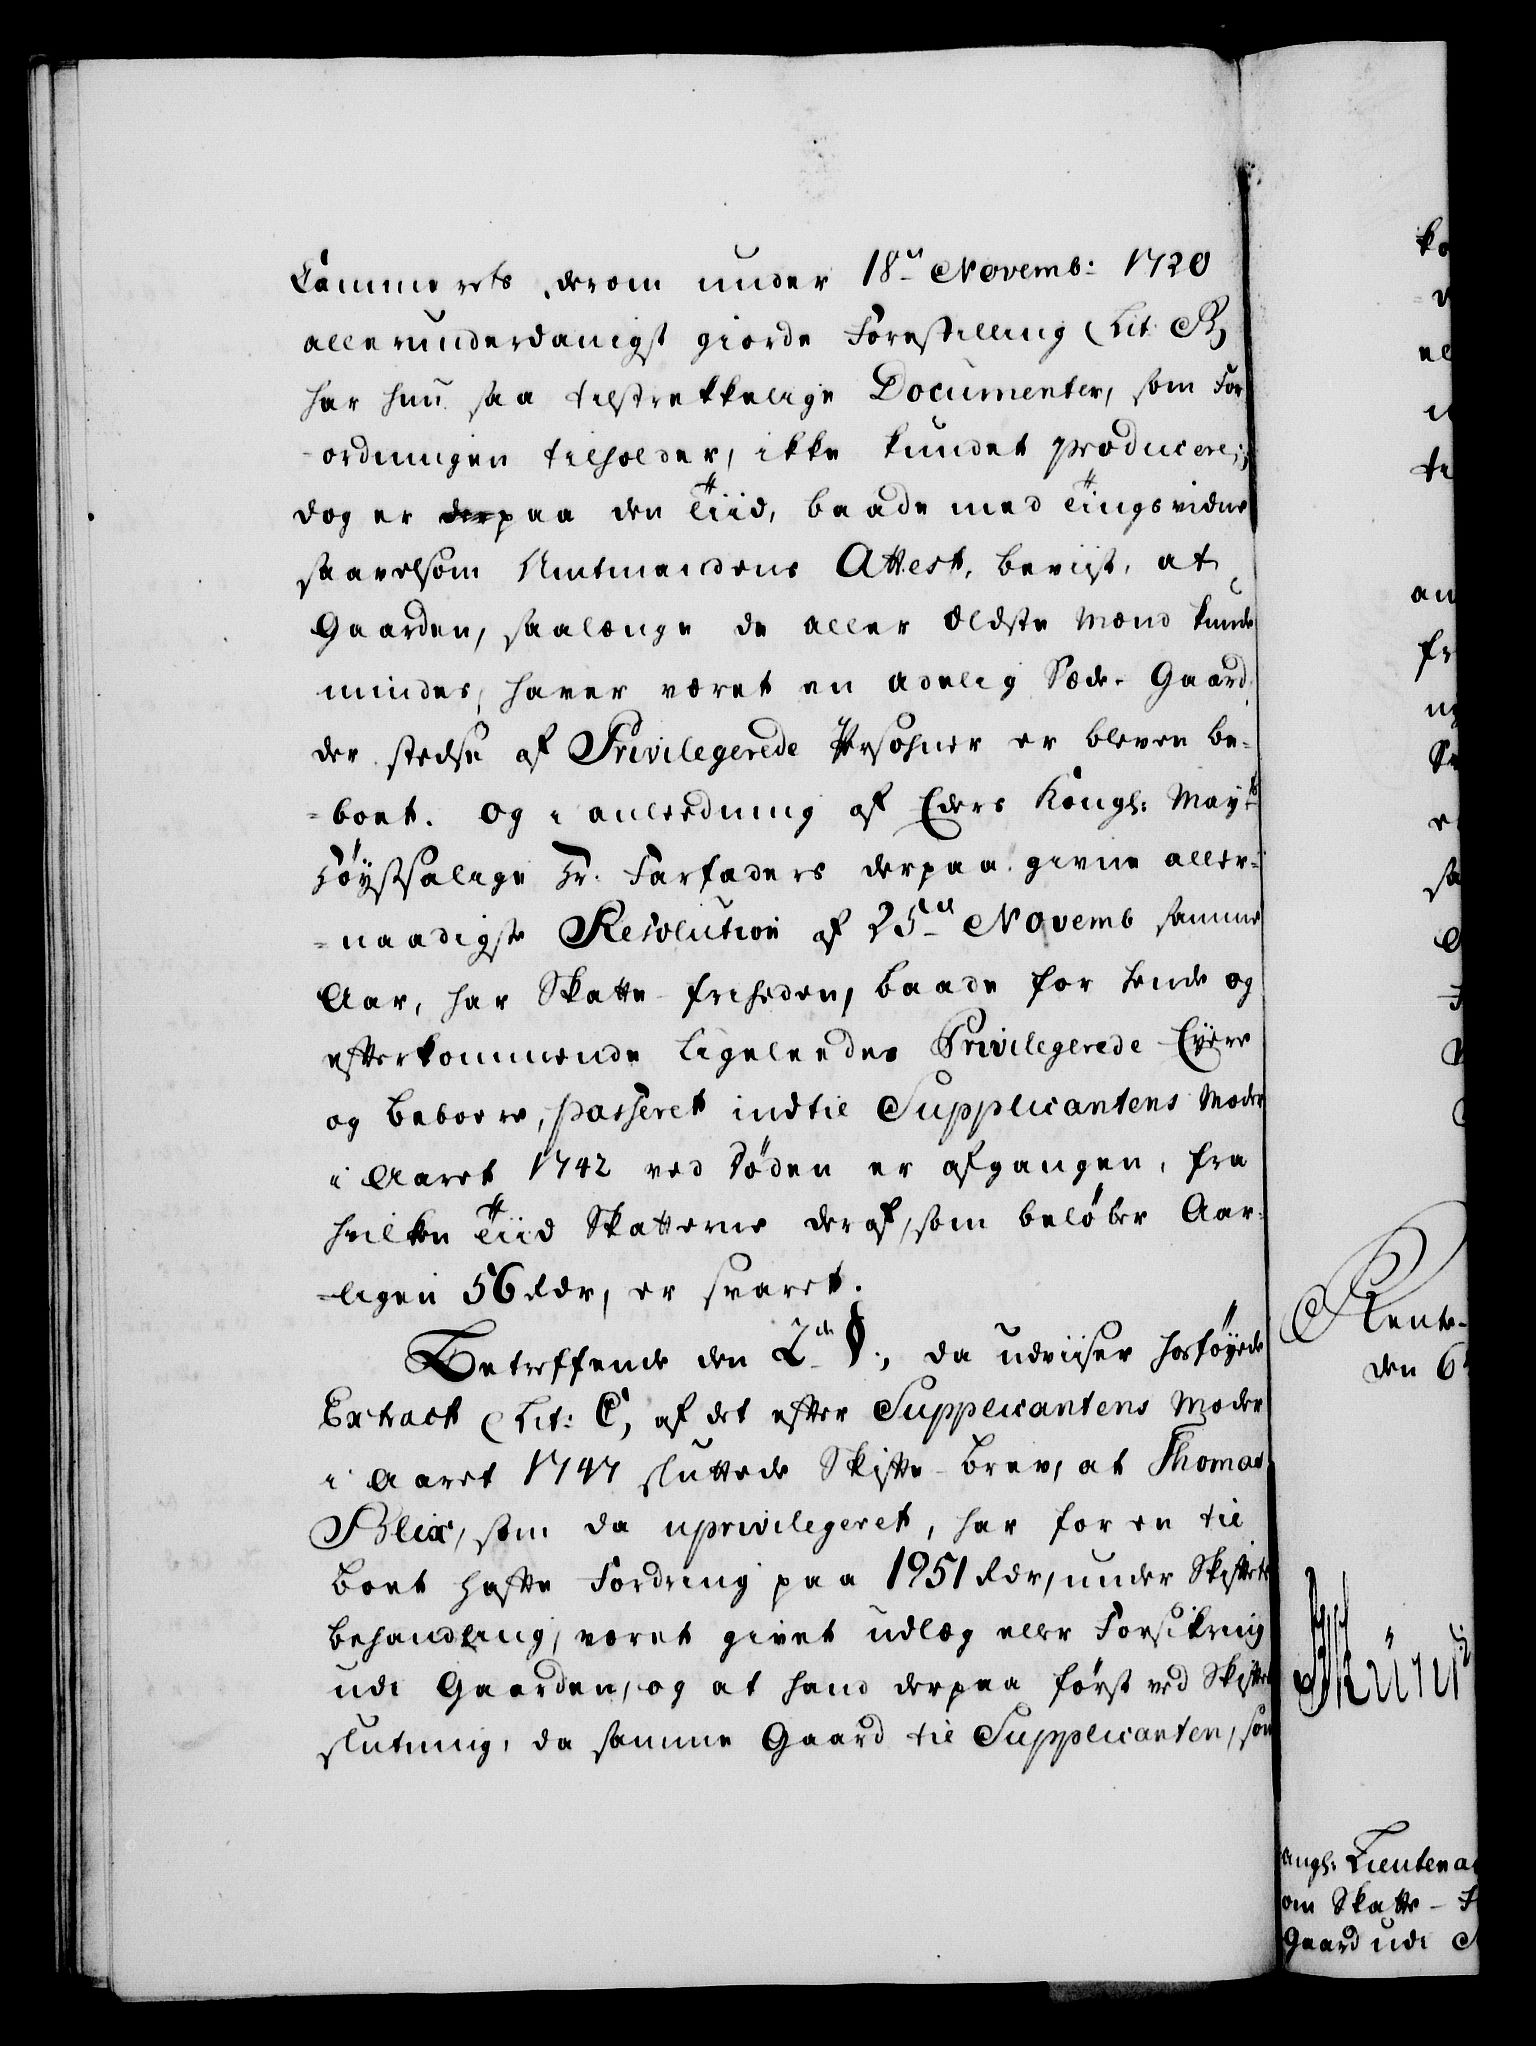 Cammerets derom under 18de Novemb: 1720
allerunderdanigst giorde Forestilling (Lit. B,
har hun saa tilstrekkelige Documenter, som For
-ordningen tilholder, ikke kundet producere;
dog er paa den Tiid, baade med Tingsvidne
saavelsom Amtmandens Attest, beviist, at
Gaarden, saalænge de aller Ældste Mænd kunde
mindes, haver været en adelig Sæde-Gaard
der stedse af Privilegerede Persohner er bleven be-
-boet. Og i anledning af Eders Kongl: Mayts
Høystsalige Hr. Farfaders derpaa givne aller-
-naadigste Resolution af 25de Novemb samme
Aar, har Skatte-friheden, baade for hende og
efterkommende ligeledes Privilegerede Eyere
og beboere, passeret indtil Supplicantens Moder
i Aaret 1742 ved Døden er afgangen, fra
hvilken Tiid Skatterne deraf, som beløber Aar-
-ligen 56 rdr, er svaret.
Betreffende den 2de §., da udviiser hosføyede
Extract (Lit: C, af det efter Supplicantens Moder
i Aaret 1747 sluttede Skifte-brev, at Thomas
Blix, som da uprivilegeret, har for en til
boet hafte Fordring paa 1951 rdr, under Skiftets
behandling, været givet udlæg eller Forsikring
udi Gaarden, og at hand derpaa først ved Skiftets
slutning, da samme Gaard til Supplicanten, som
Rente-
den 6
ongl: Lieutena
om Skatte-F
Gaard udi